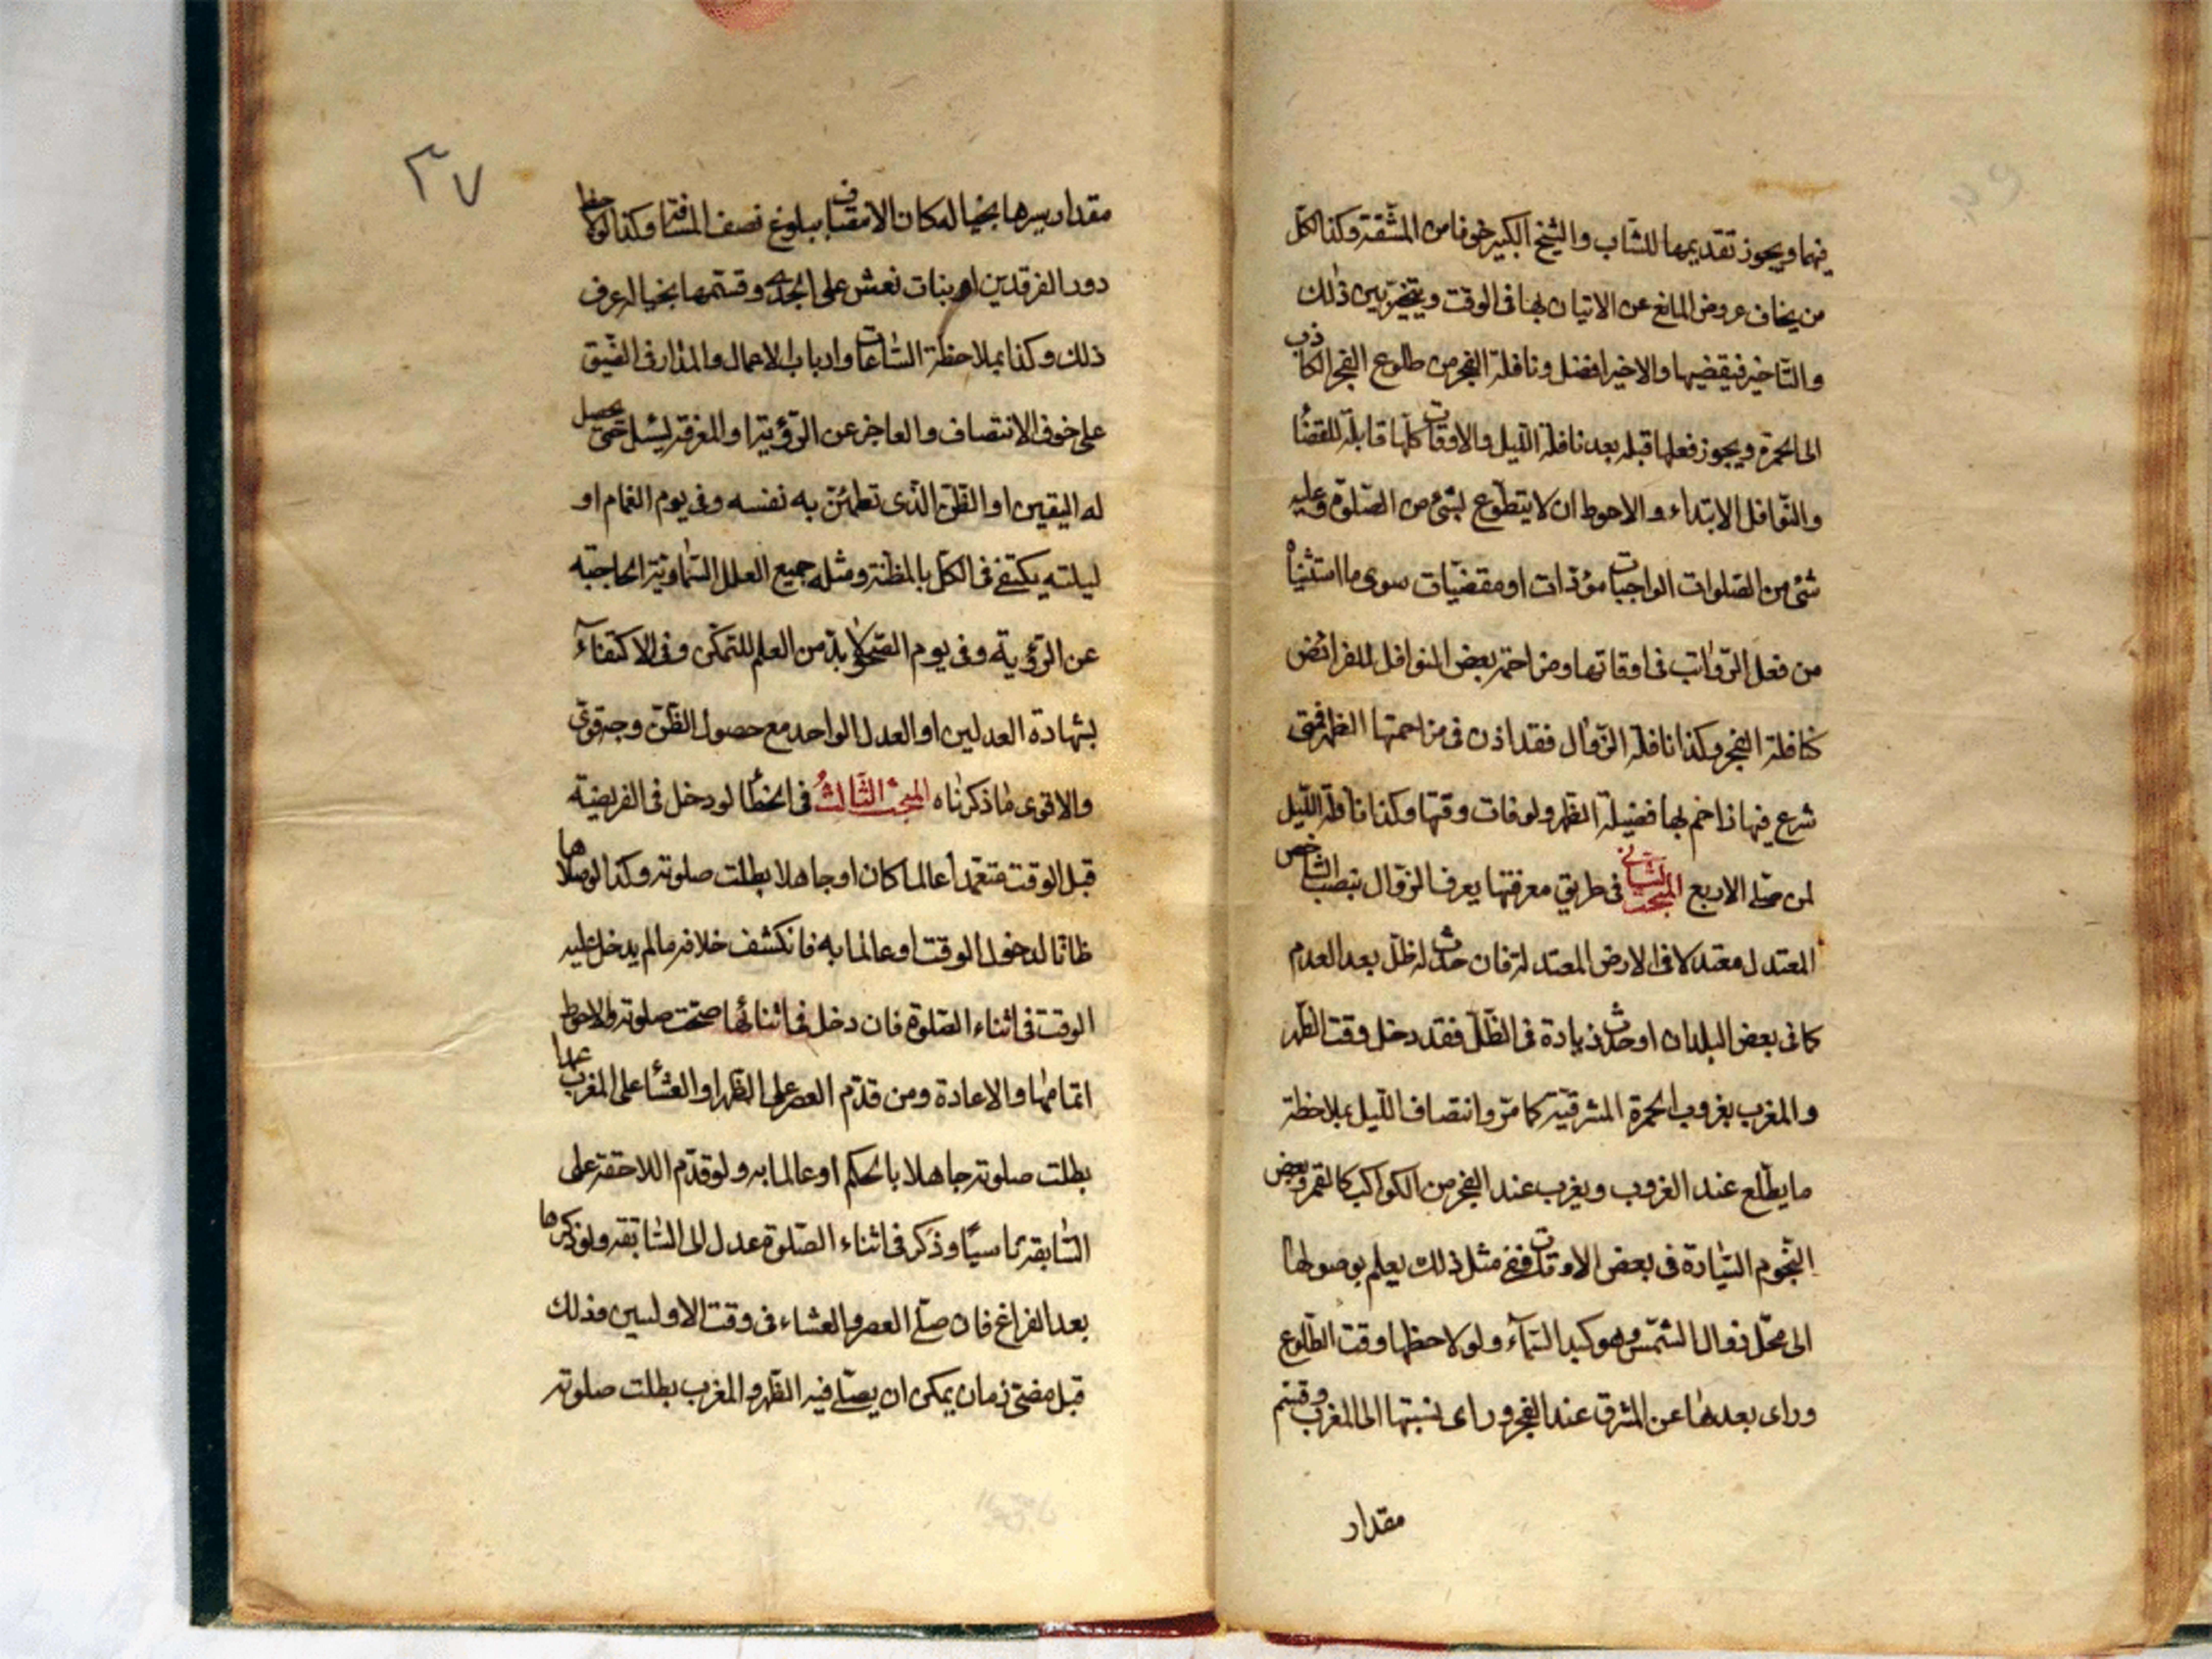 فيهما ويجوز تقديمها للشاب والشيخ الكبير خوفا من المشقة وكذا لكل
من يخاف عروض المانع عن الاتيان بها فى الوقت ويتخير بين ذلك
والتاخير فيقضيها والاخير افضل ونافلة الفجر من طلوع الفجر الكاذب
الى الحمرة ويجوز فعلها قبله بعد نافلة الليل والاوقات كلها قابلة للقضاء
والنوافل الابتداء والاحوط ان لا يتطوع بشئ من الصلوة وعليه
شئ من الصلوات الواجبات مؤديات او مقضيات سوى ما استثنياه
من فعل الرواتب فى اوقاتها ومزاحمة بعض النوافل للفرائض
كنافلة الفجر وكذا نافلة الزوال فقد اذن فى مزاحمتها الظهر فمتى
شرع فيها زاحم بها فضيلة الظهر ولو فات وقتها وكذا نافلة الليل
لمن صلى الاربع المبحث الثانى فى طريق معرفتها يعرف الزوال بنصب الشاخص
المعتدل معتدلا فى الارض المعتدلة فان حدث له ظل بعد العدم
كما فى بعض البلدان او حدث زيادة فى الظل فقد دخل وقت الظهر
والمغرب بغروب الحمرة المشرقية كما مر وانتصاف الليل بملاحظة
ما يطلع عند الغروب ويغرب عند الفجر من الكواكب كالقمر وبعض
النجوم السيارة فى بعض الاوقات ففى مثل ذلك يعلم بوصولها
الى محل زوال الشمس وهو كبد السماء ولو لاحظها وقت الطلوع
وراى بعدها عن المشرق عند الفجر وراى نسبتها الى المغرب وقسم
مقدار
٣٧
مقدار سيرها بخياله كان الانتصاف ببلوغ نصف المسافة وكذا لو لاحظ
دور الفرقدين او بنات نعش على الجدى وقسمها بخياله عرف
ذلك وكذا بملاحظة الساعات وارباب الاعمال والمدار فى الضيق
على خوف الانتصاف والعاجز عن الرؤية او المعرفة ليسئل حتى يحصل
له اليقين او الظن الذى تطمئن به نفسه وفى يوم الغمام او
ليلته يكتفى فى الكل بالمظنة ومثله جميع العلل السماوية الحاجبة
عن الرؤية وفى يوم الصحو لا بد من العلم للتمكن وفى الاكتفاء
بشهادة العدلين او العدل الواحد مع حصول الظن وجه قوى
والاقوى ما ذكرناه المبحث الثالث فى الخطأ لو دخل فى الفريضة
قبل الوقت متعمدا عالما كان او جاهلا بطلت صلوته وكذا لو صلاها
ظانا لدخول الوقت او عالما به فانكشف خلافه ما لم يدخل عليه
الوقت فى اثناء الصلوة فان دخل فى اثنائها صحت صلوته والاحوط
اتمامها والاعادة ومن قدم العصر على الظهر او العشاء على المغرب عمدا
بطلت صلوته جاهلا بالحكم او عالما به ولو قدم اللاحقة على
السابقة ناسيا وذكر فى اثناء الصلوة عدل الى السابقة ولو ذكرها
بعد الفراغ فان صلى العصر والعشاء فى وقت الاوليين وذلك
قبل مضى زمان يمكن ان يصلى فيه الظهر والمغرب بطلت صلوته